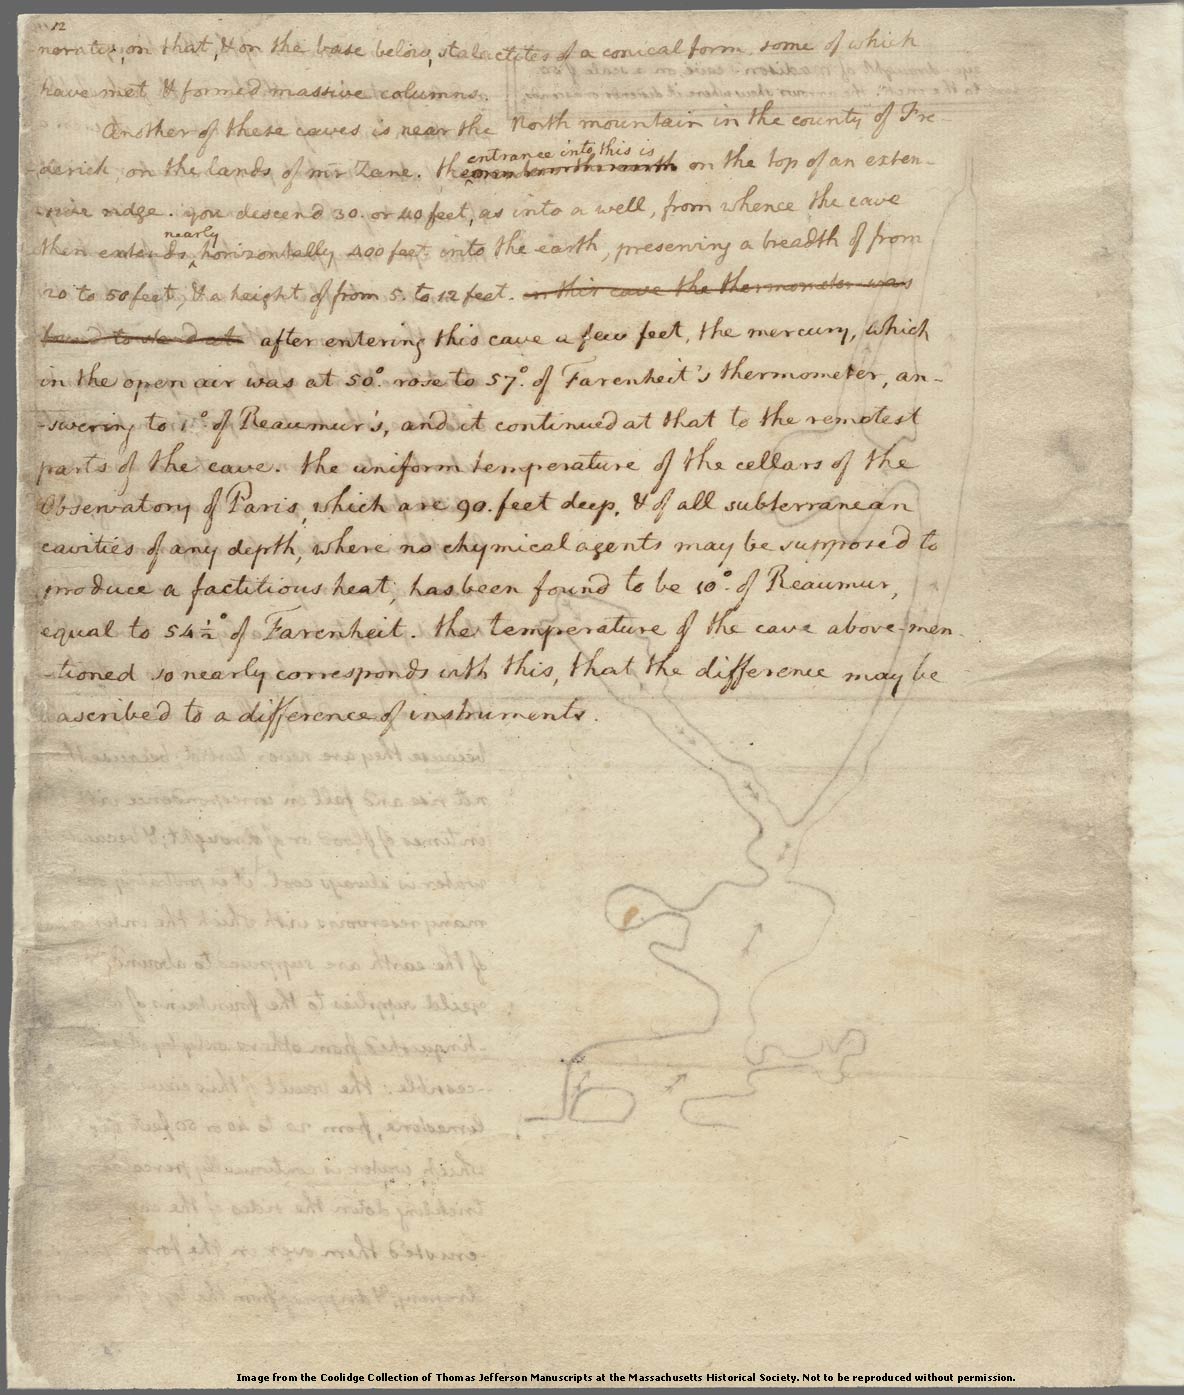 12
nerates, on that, & on the base below, stalactites of a conical form, some of which
have met & formed massive columns.
Another of these caves is near the North mountain in the county of Fre-
-derick, on the lands of mr Zane. the entrance into this is on the top of an exten-
-sive ridge. you descend 30. or 40 feet, as into a well, from whence the cave
then extends, nearly horizontally, 400 feet into the earth, preserving a breadth of from
20 to 50 feet, & a height of from 5. to 12 feet. in this cave the thermometer was
found to stand at after entering this cave a few feet, the mercury, which
in the open air was at 50°. rose to 57°. of Farenheit's thermometer, an-
-swering to 11°. of Reaumur's, and it continued at that to the remotest
parts of the cave. the uniform temperature of the cellars of the
Observatory of Paris, which are 90. feet deep, & of all subterranean
cavities of any depth, where no chymical agents may be supposed to
produce a factitious heat, has been found to be 10°. of Reaumur,
equal to 54 1/2° of Farenheit. the temperature of the cave above-men-
-tioned so nearly corresponds with this, that the difference may be
ascribed to a difference of instruments.
Image from the Coolidge Collection of Thomas Jefferson Manuscripts at the Massachusetts Historical Society. Not to be reproduced without permission.